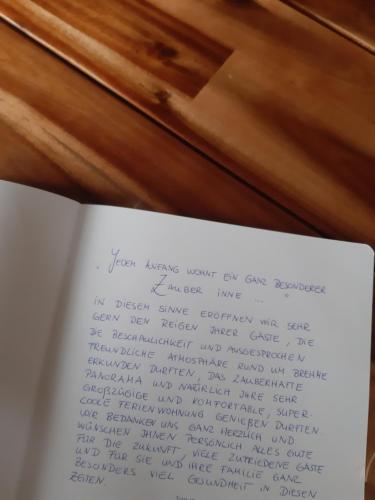 "JEDEM ANFANG WOHNT EIN GANZ BESONDERER
ZAUBER INNE ... "
IN DIESEM SINNE ERÖFFNEN WIR SEHR
GERN DEN REIGEN IHRER GÄSTE, DIE
DIE BESCHAULICHKEIT UND AUSGESPROCHEN
FREUNDLICHE ATMOSPHÄRE RUND UM BREHME
ERKUNDEN DURFTEN, DAS ZAUBERHAFTE
PANORAMA UND NATÜRLICH IHRE SEHR
GROßZÜGIGE UND KOMFORTABLE, SUPER-
COOLE FERIENWOHNUNG GENIEßEN DURFTEN.
WIR BEDANKEN UNS GANZ HERZLICH UND
WÜNSCHEN IHNEN PERSÖNLICH ALLES GUTE
FÜR DIE ZUKUNFT, VIELE ZUFRIEDENE GÄSTE
UND FÜR SIE UND IHRE FAMILIE GANZ
BESONDERS VIEL GESUNDHEIT IN DIESEN
ZEITEN.